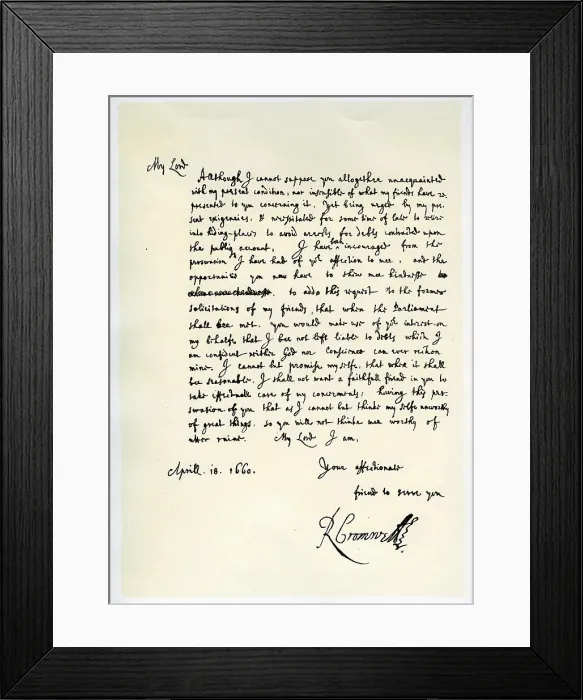 My Lord
Although I cannot suppose you alltogether unacquainted
with my present condition, nor insensible of what my friends have re-
presented to you concerning it. Yet being urged by my pre-
sent exigencies, & necessitated for some time of late to retire
into hiding-places to avoid arrests for debts contracted upon
the publiq account, I have been incouraged from the
perswasion I have had of yor affection to mee, and the
opportunitie you now have to shew mee kindnesse
to adde this request to the former
solicitations of my friends, that when the Parliament
shall bee met. you would make use of yor interest on
my behalfe that I bee not left liable to debts which I
am confident neither God nor Conscience can ever reckon
mine. I cannot but promise my selfe, that when it shall
bee seasonable, I shall not want a faithfull friend in you to
take effectuall care of my concernments; having this per-
swasion of you that as I cannot but thinke my selfe unworthy
of great things, so you will not thinke mee worthy of
utter ruine. My Lord I am,
Your affectionate
Aprill. 18. 1660.
friend to serve you
R Cromwell